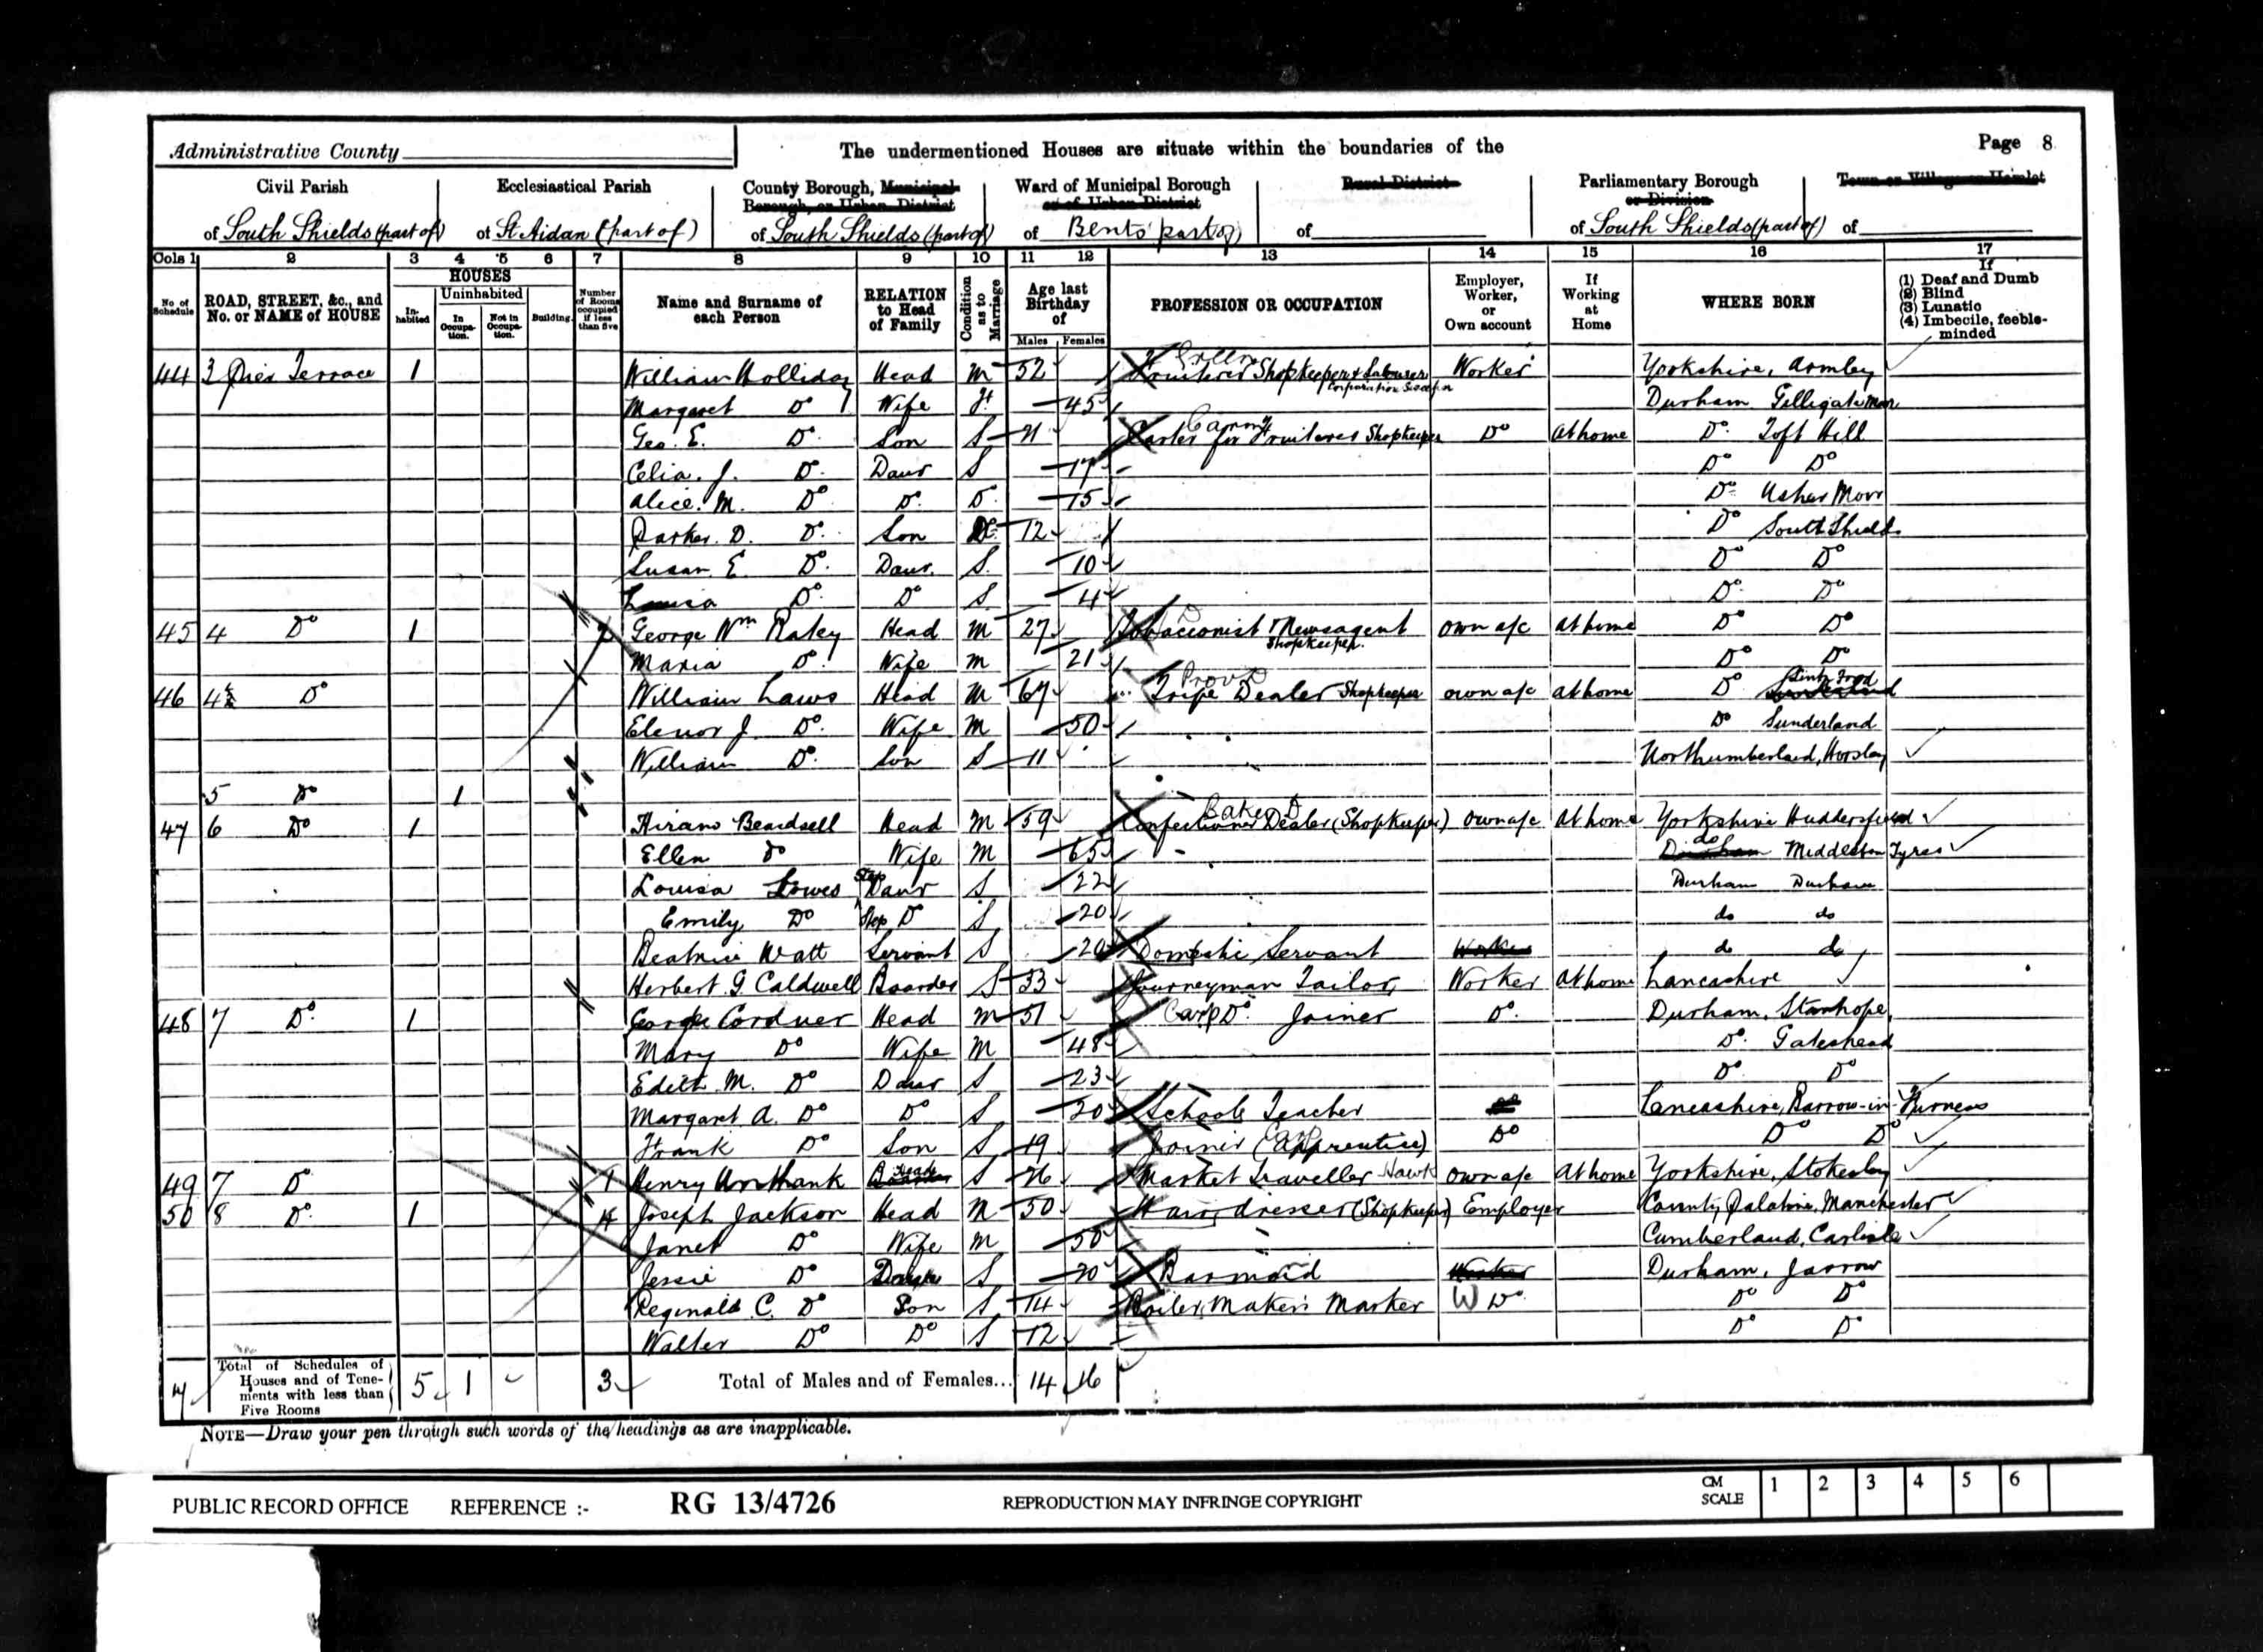 Administrative County
The undermentioned Houses are situate within the boundaries of the
Page 8
Civil Parish
Ecclesiastical Parish
County Borough, Municipal Borough, or Urban District
Ward of Municipal Borough or of Urban District
Rural District
Parliamentary Borough or Division
Town or Village or Hamlet
of South Shields (part of)
of St Aidan (part of)
of South Shields (part of)
of Bents (part of)
of
of South Shields (part of)
of
Cols 1 2 3 4 5 6 7 8 9 10 11 12 13 14 15 16 17
No. of Schedule
ROAD, STREET, &c., and No. or NAME of HOUSE
HOUSES
Inhabited
Uninhabited
In Occupation.
Not in Occupation.
Building.
Number of Rooms occupied if less than five
Name and Surname of each Person
RELATION to Head of Family
Condition as to Marriage
Age last Birthday of
Males Females
PROFESSION OR OCCUPATION
Employer, Worker, or Own account
If Working at Home
WHERE BORN
If
(1) Deaf and Dumb
(2) Blind
(3) Lunatic
(4) Imbecile, feeble-minded
44 3 Pier Terrace 1 William Holliday Head M 52 Fruiterer Shopkeeper & Labourer Corporation Worker Yorkshire, Armley
Margaret Do Wife 45 Durham Gilligate Moor
Geo. E. Do Son S 21 Carter for Fruiterer Shopkeeper Do At home Do Toft Hill
Celia. J. Do Daur S 17 Do Do
Alice. M. Do Do Do 15 Do Usher Moor
Parker. D. Do Son Do 12 Do South Shields
Susan E. Do Daur. S 10 Do Do
Louisa Do Do S 4 Do Do
45 4 Do 1 2 George Wm Raley Head M 27 Tobacconist & Newsagent Shopkeeper. own a/c at home Do Do
Maria Do Wife M 21 Do Do
46 4½ Do William Laws Head M 67 Tripe Dealer Shopkeeper own a/c at home Do
Elenor J. Do Wife M 50 Do Sunderland
William Do Son S 11 Northumberland, Horsley
5 Do 1
47 6 Do 1 Hiram Beardsell Head M 59 Confectioner Dealer (Shopkeeper) Baker own a/c At home Yorkshire Huddersfield
Ellen do Wife M 65 do Middleton Tyres
Louisa Lowes Step Daur S 22 Durham Durham
Emily Do Step D S 20 do do
Beatrice Watt Servant S 20 Domestic Servant Worker do do
Herbert G. Caldwell Boarder S 33 Journeyman Tailor Worker At home Lancashire
48 7 Do 1 George Cordner Head M 51 Do Joiner Carp Do. Durham, Stanhope
Mary Do Wife M 48 Do. Gateshead
Edith M. Do Daur S 23 Do Do
Margaret A. Do Do S 20 Schools Teacher Lancashire, Barrow-in-Furness
Frank Do Son S 19 Joiner (Apprentice) Do Do Do
49 7 Do 1 Henry Unthank Head S 26 Market Traveller Hawk own a/c At home Yorkshire, Stokesley
50 8 Do 1 4 Joseph Jackson Head M 50 Hairdresser (Shopkeeper) Employer County Palatine, Manchester
Janet Do Wife M 50 Cumberland, Carlisle
Jessie Do Daur S 20 Barmaid Worker Durham, Jarrow
Reginald C. Do Son S 14 Boiler Makers Marker W Do Do Do
Walter Do Do S 12 Do Do
Total of Schedules of Houses and of Tenements with less than Five Rooms 5 1 3 Total of Males and of Females... 14 16
NOTE—Draw your pen through such words of the headings as are inapplicable.
PUBLIC RECORD OFFICE REFERENCE :- RG 13/4726 REPRODUCTION MAY INFRINGE COPYRIGHT CM SCALE 1 2 3 4 5 6